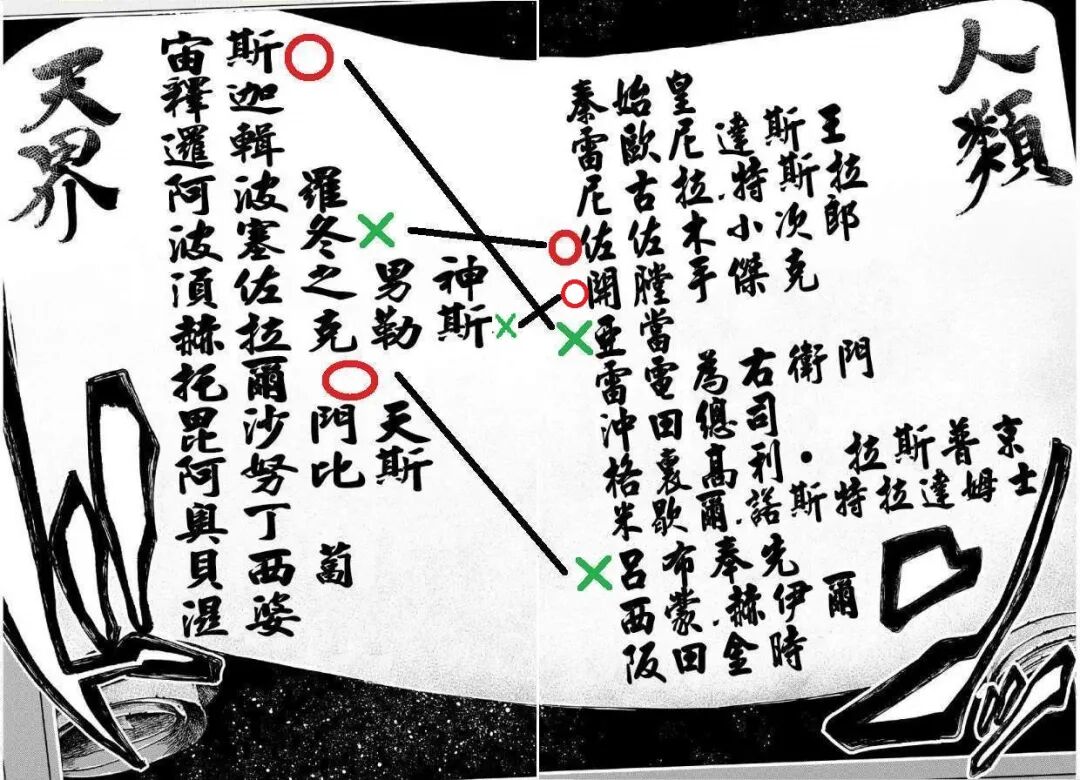 天界
宙斯
釋迦
邏輯
阿波羅
波塞冬
湏佐之男神
赫拉克勒斯
托爾
毘沙門天
阿努比斯
奧丁
貝西蔔
湿婆
人類
秦始皇
雷歐尼達斯王
尼古拉.特斯拉
佐佐木小次郎
開膛手傑克
亞當
雷電為右衛門
沖田總司
格裏高利•拉斯普京
米歇爾.諾斯特拉達姆士
呂布奉先
西蒙.赫伊爾
阪田金時